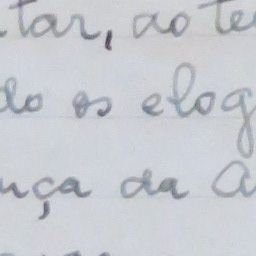 tar, ao te
do os elog
nça da a